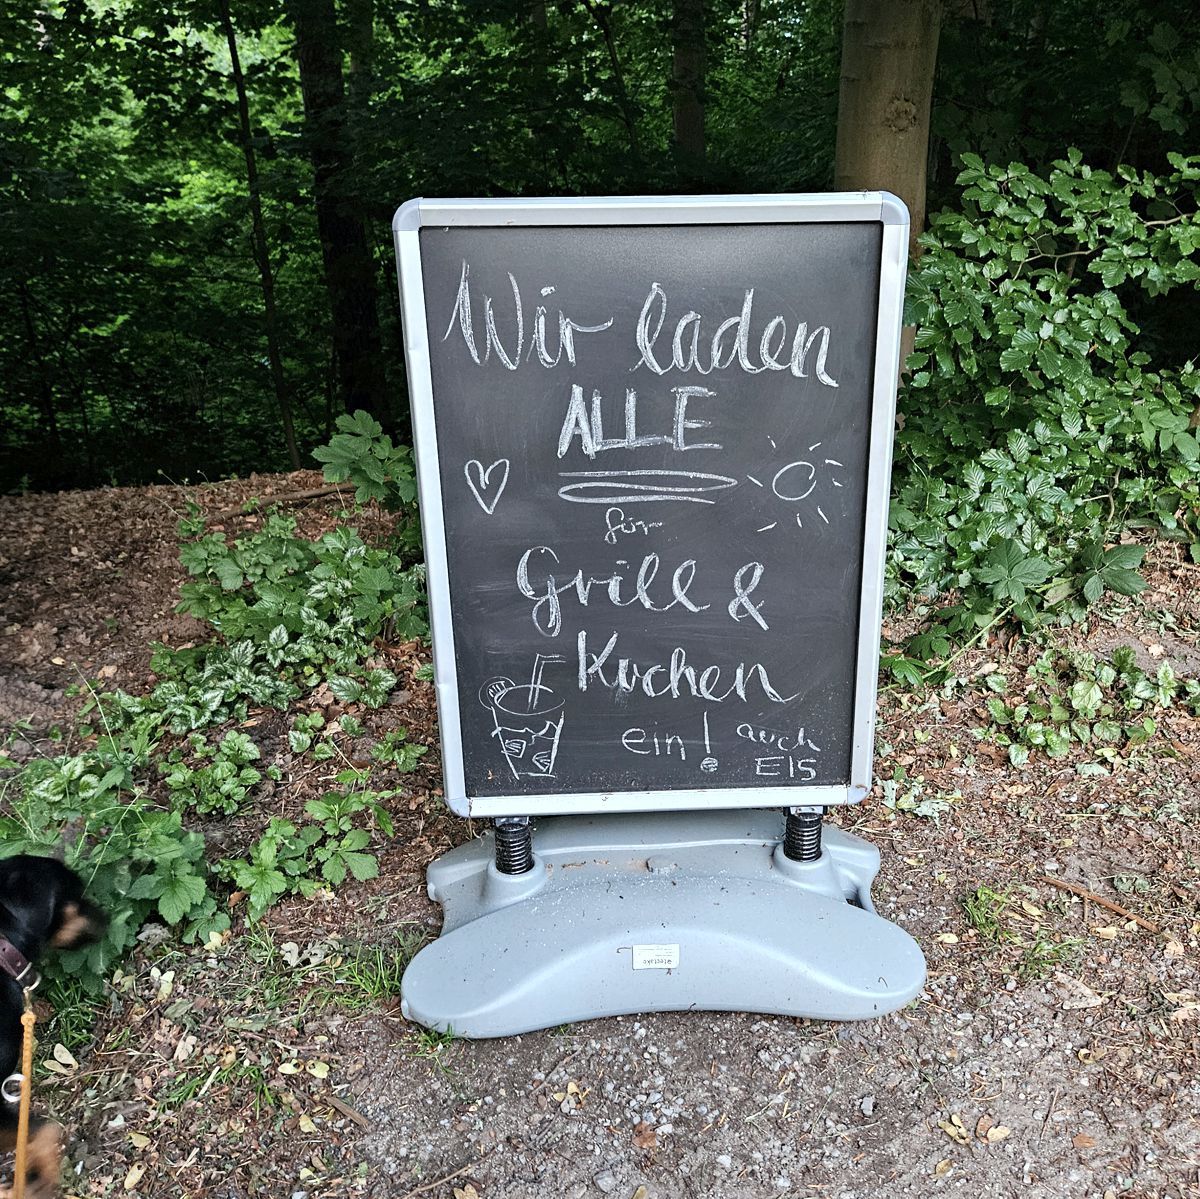 Wir laden
ALLE
für
Grill &
Kuchen
ein! auch
EIS